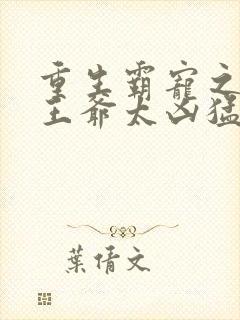 重生霸寵之
王爺太凶猛
葉倩文